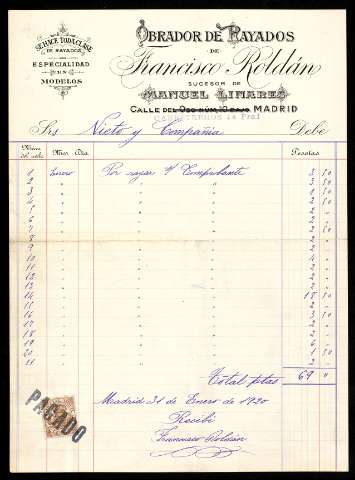 SE HACE TODA CLASE
DE RAYADOS
ESPECIALIDAD
EN
MODELOS
OBRADOR DE RAYADOS
DE
Francisco Roldán
SUCESOR DE
MANUEL LINARES
CALLE DEL OSO NÚM. 10 BAJO MADRID
Srs Nieto y Compañia Debe
Núm. del vale Mes Dia Pesetas
1 Enero Por rayar s/ Comprobante 3 50
2 " " " 3 50
3 " " " 1 50
4 " " "
5 " " "
6 " " "
7 " " "
8 " " "
9 " " "
10 " " "
11 " " "
12 " " "
13 " " "
14 " " " 18 50
15 " " "
16 " " " 3 50
17 " " "
18 " " "
19 " " "
20 " " " 1 50
21 " " "
Total ptas 69 "
Madrid 31 de Enero de 1920
Recibí
Francisco Roldán
PAGADO